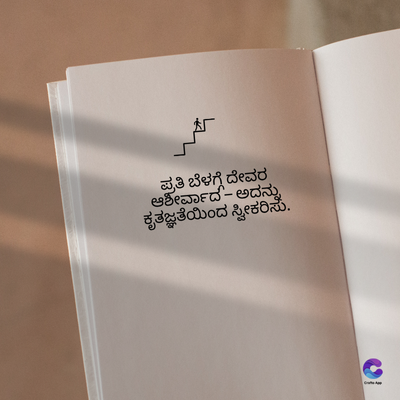 ಪ್ರತಿ ಬೆಳಗ್ಗೆ ದೇವರ
ಆಶೀರ್ವಾದ – ಅದನ್ನು
ಕೃತಜ್ಞತೆಯಿಂದ ಸ್ವೀಕರಿಸು.
Crafto App